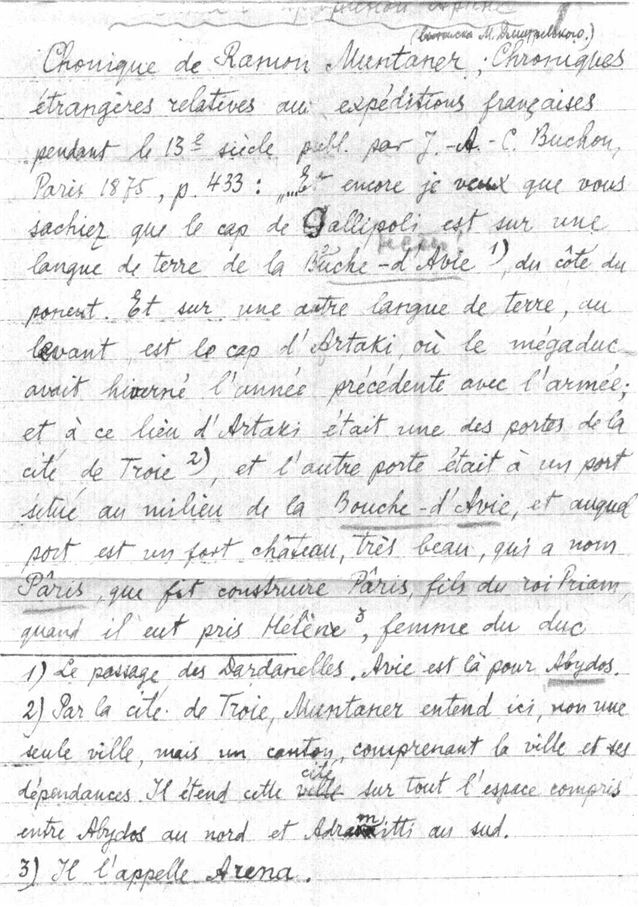 (выписка М. Дмитриевского.)
Chonique de Ramon Muntaner; Chroniques
étrangères relatives au expéditions françaises
pendant le 13e siècle publ. par J.-A.-C. Buchon,
Paris 1875, p. 433: „...Et encore je veux que vous
sachiez que le cap de Gallipoli est sur une
langue de terre de la Bûche-d'Avie 1), du côté du
ponent. Et sur une autre langue de terre, au
levant est le cap d'Artaki, où le mégaduc
avait hiverné l'année précédente avec l'armée;
et à ce lieu d'Artaki était une des portes de la
cité de Troie 2), et l'autre porte était à un port
situé au milieu de la Bouche-d'Avie, et auquel
port est un fort château, très beau, qui a nom
Pâris, que fit construire Pâris, fils du roi Priam,
quand il eut pris Hélène 3, femme du duc
1) Le passage des Dardanelles. Avie est là pour Abydos.
2) Par la cité de Troie, Muntaner entend ici, non une
seule ville, mais un canton, comprenant la ville et ses
dépendances. Il étend cette cité sur tout l'espace compris
entre Abydos au nord et Adramitti au sud.
3) Il l'appelle Arena.